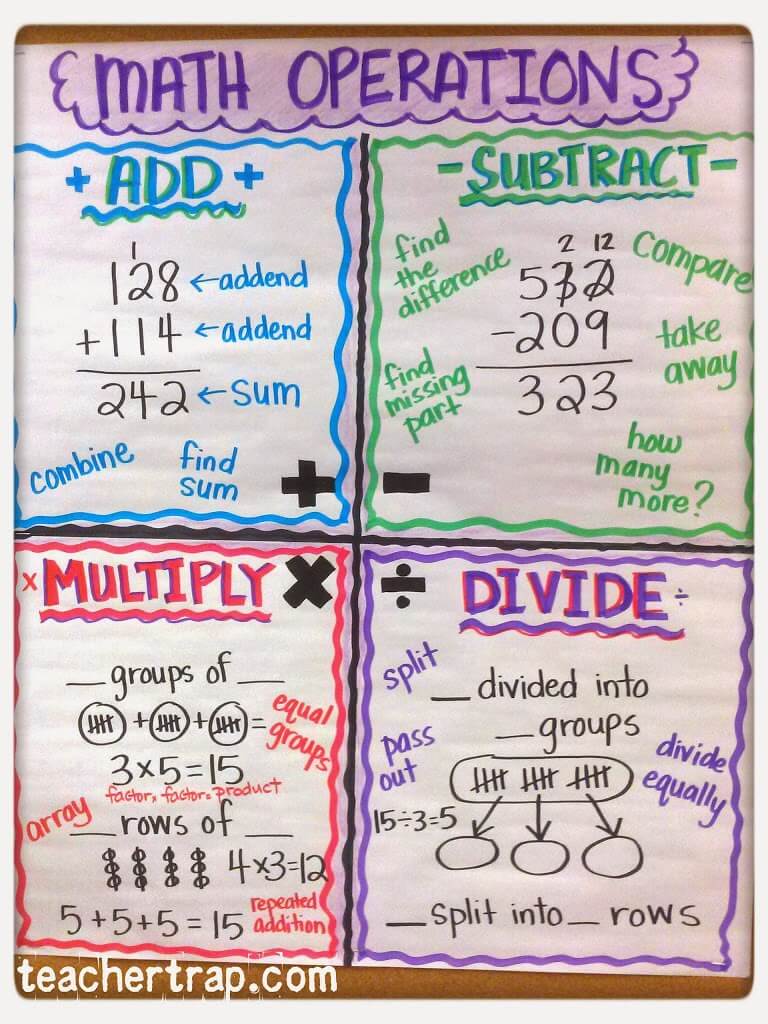 MATH OPERATIONS
+ ADD +
1
128 ← addend
+114 ← addend
242 ← sum
combine
find
sum
+
- SUBTRACT -
find
the
difference
2 12
532
-209
323
Compare
take
away
find
missing
part
how
many
more?
-
x MULTIPLY X
__ groups of __
+ + =
equal
groups
3x5=15
factor x factor = product
array
__ rows of __
4x3=12
5+5+5=15
repeated
addition
÷ DIVIDE ÷
split
__ divided into
__ groups
pass
out
divide
equally
15÷3=5
__ split into __ rows
teachertrap.com